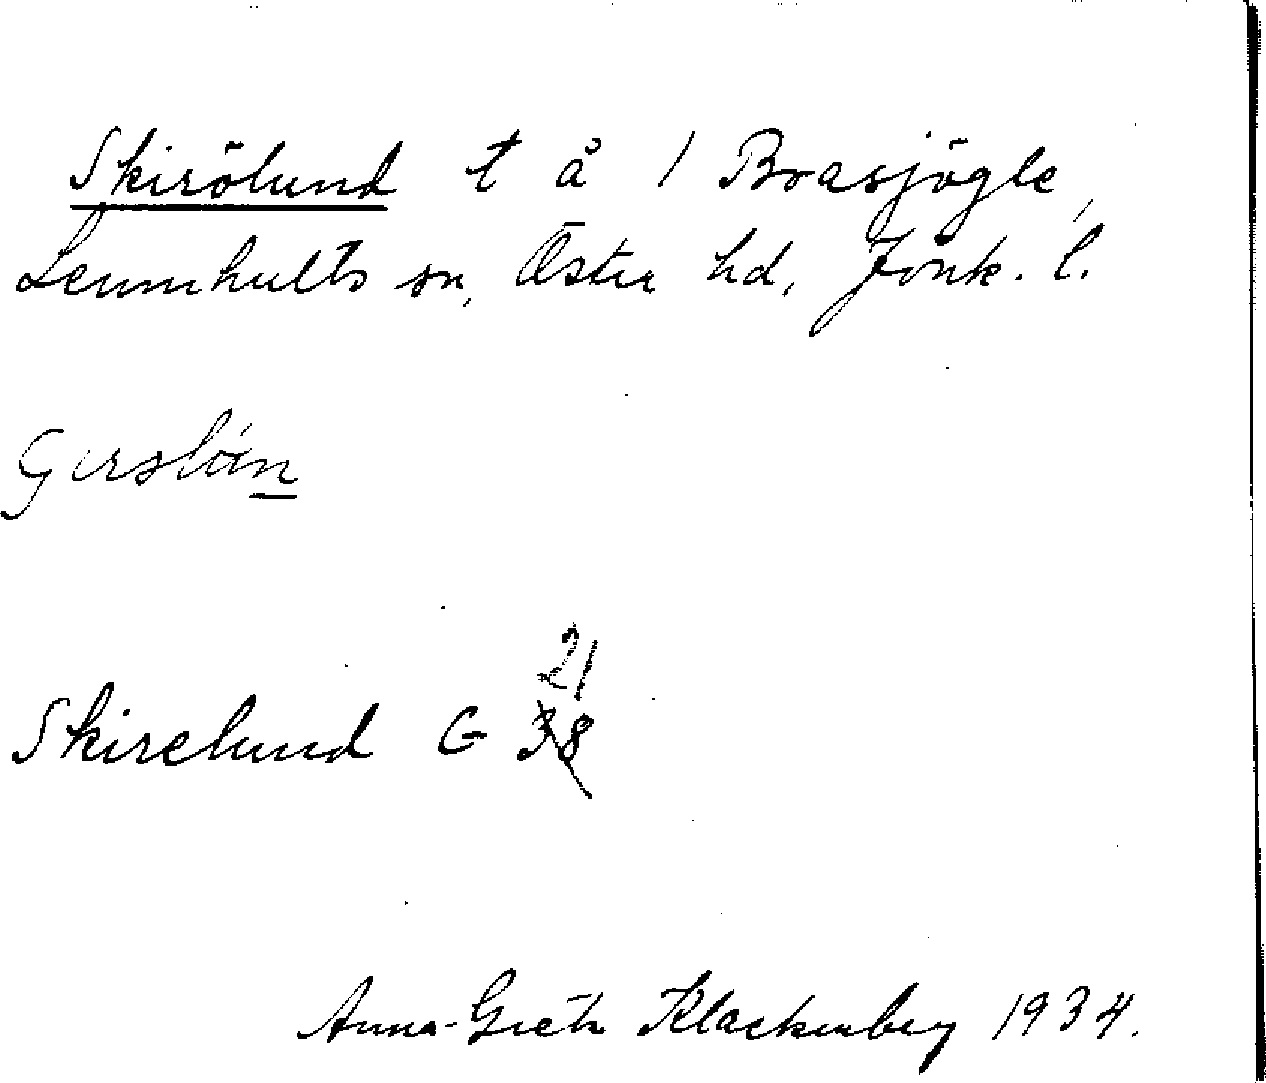 Skirölund t å 1 Boasjögle,
Lemnhults sn, Östra hd, Jönk. l.
21
Skirelund G 38
Anna-Greta Klackenberg 1934.